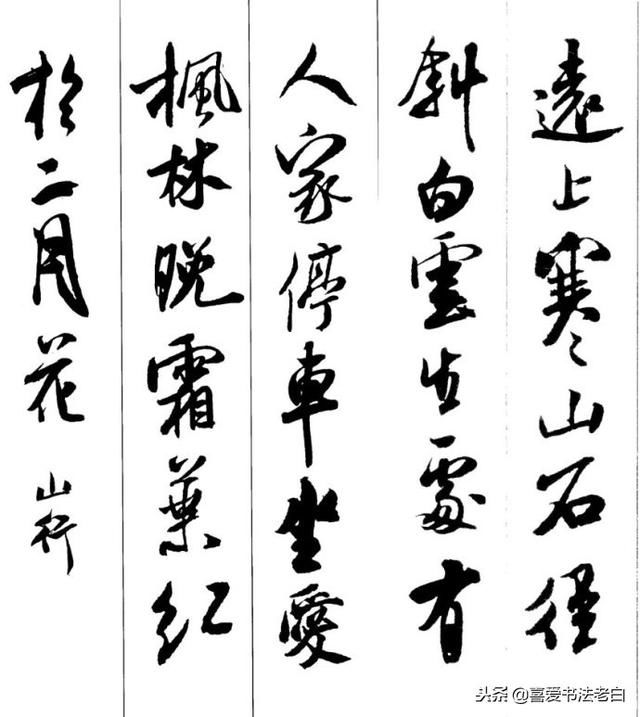 遠上寒山石徑
斜白雲生處有
人家停車坐愛
楓林晚霜葉紅
於二月花 山行
头条@喜爱书法老白